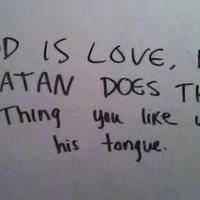 OD IS LOVE,
ATAN DOES TH
Thing you like
his tongue.